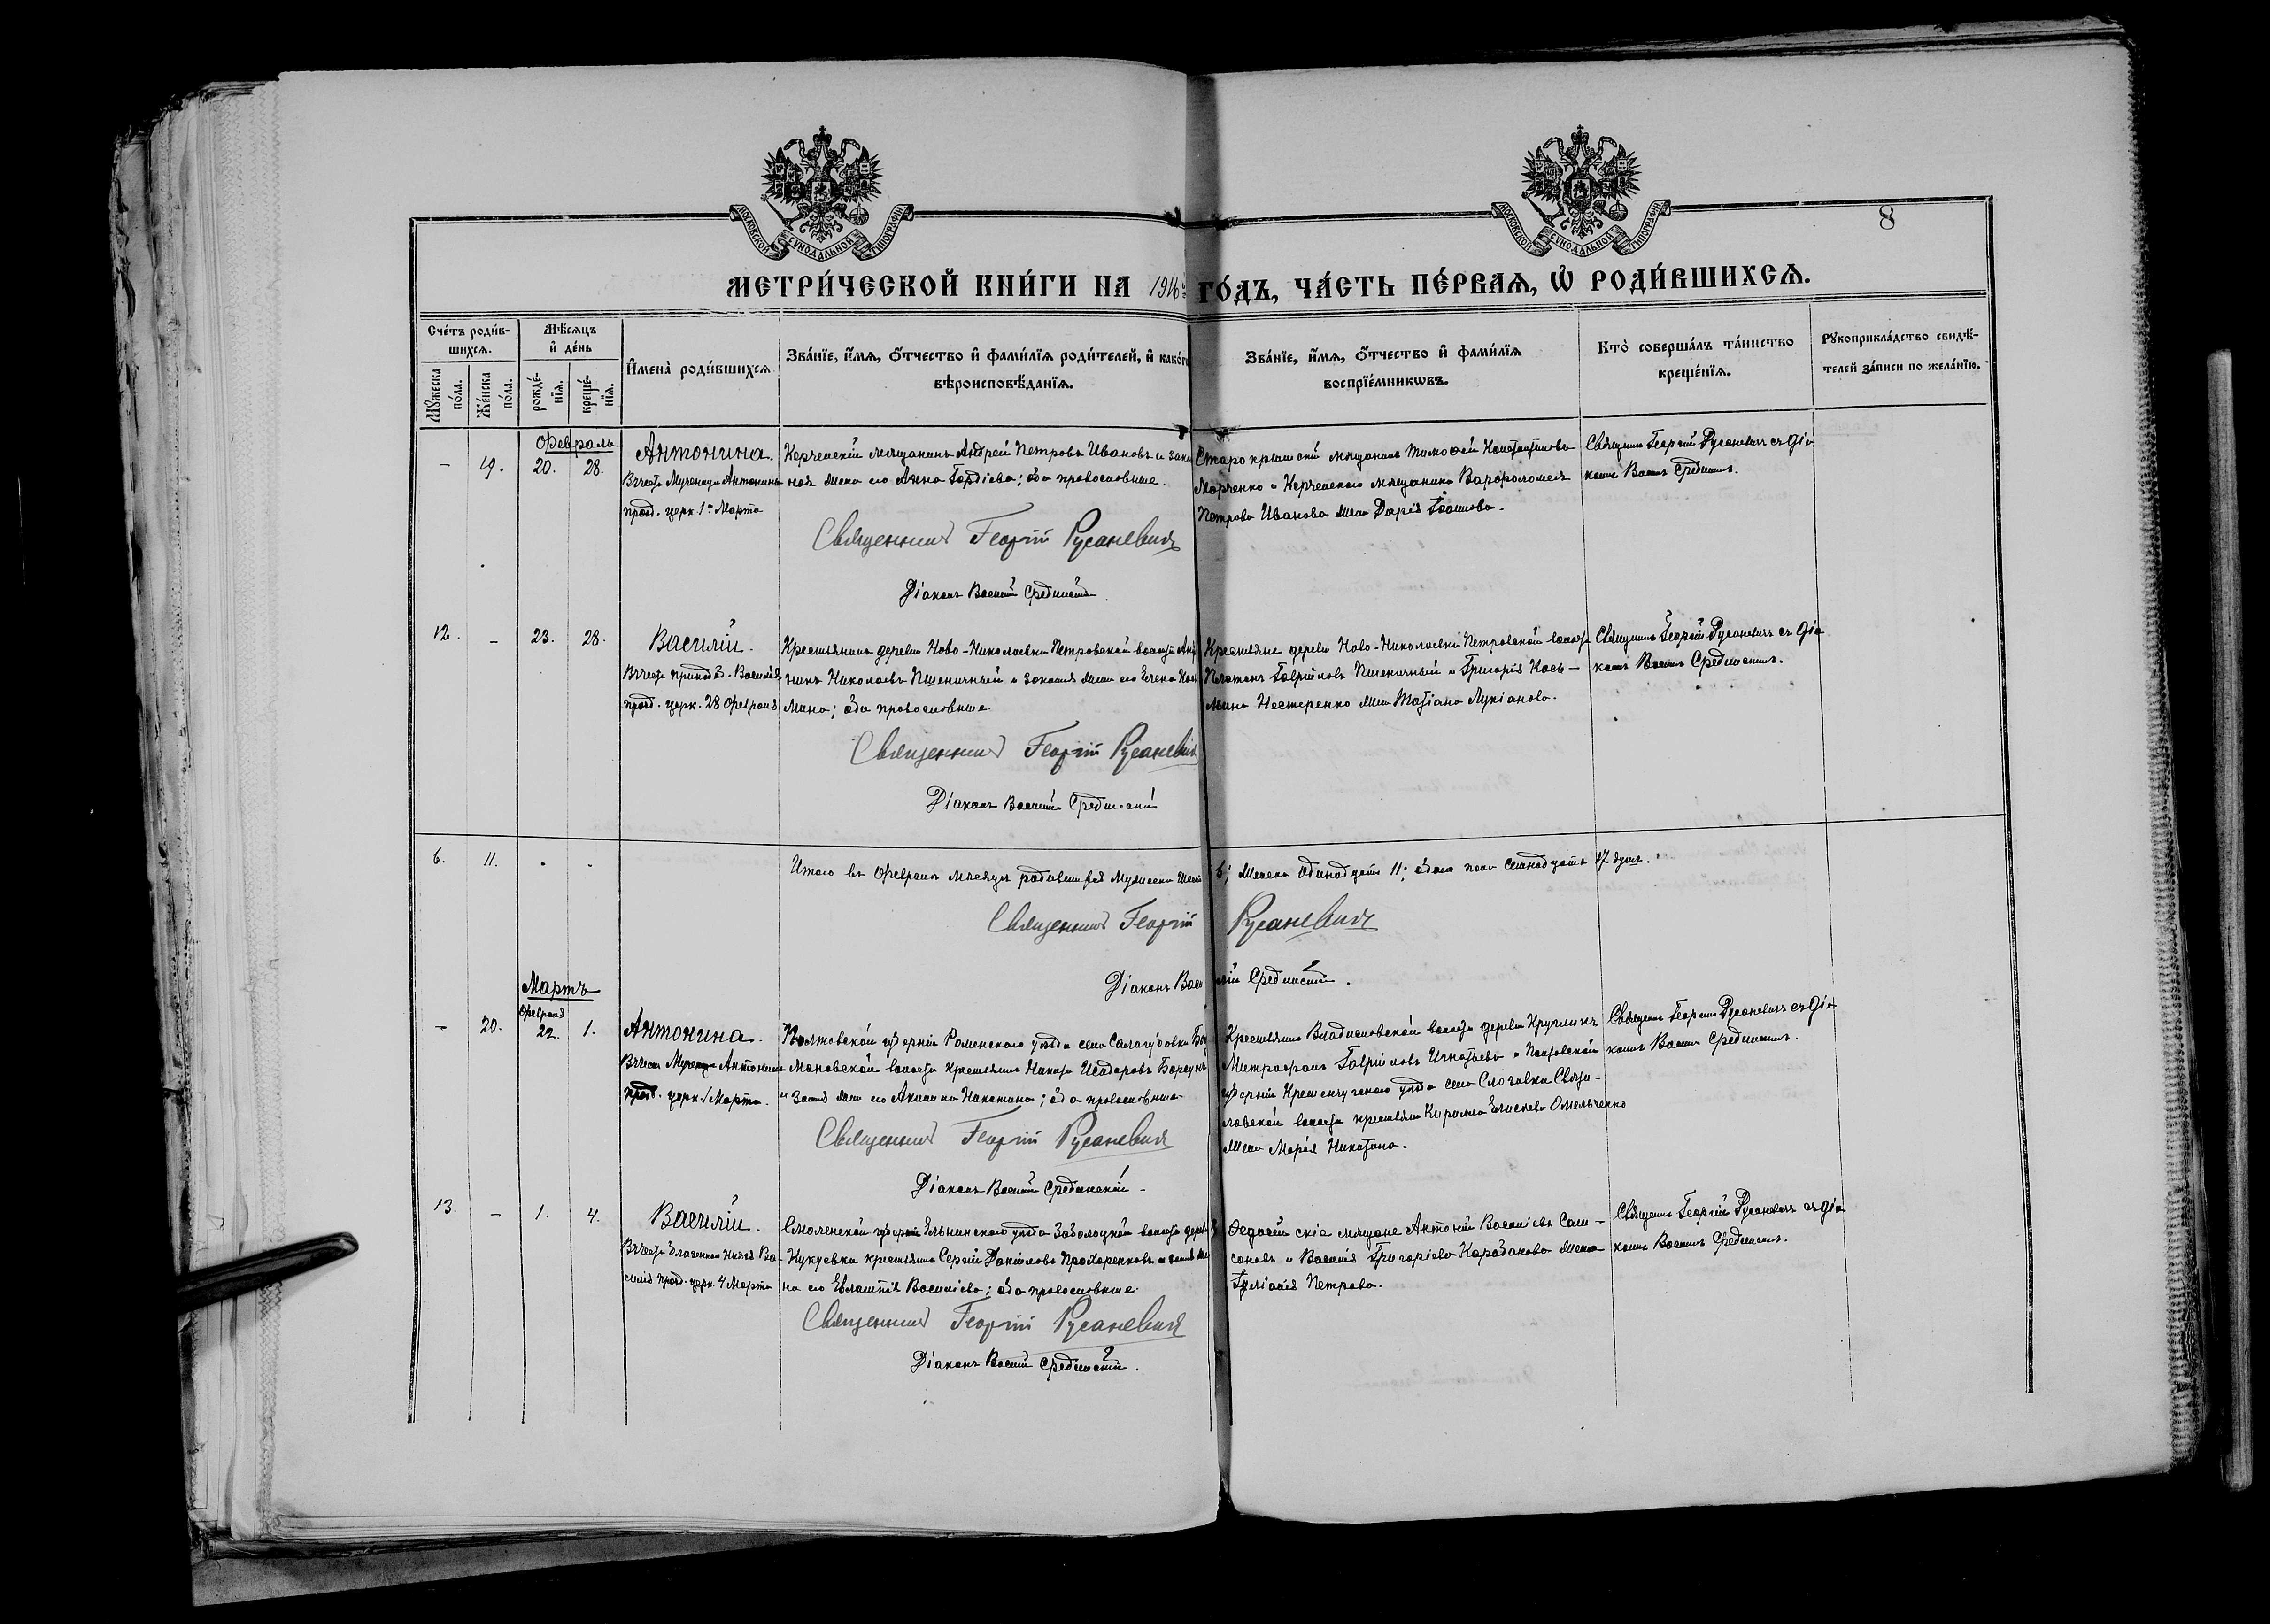 МОСКОВСКОЙ СѴНОДАЛЬНОЙ ТИПОГРАФІИ
МОСКОВСКОЙ СѴНОДАЛЬНОЙ ТИПОГРАФІИ
8
МЕТРИ́ЧЕСКОЙ КНИ́ГИ НА 1916 ГО́ДЪ, ЧА́СТЬ ПЕ́РВАѦ, Ѡ҆ РОДИ́ВШИХСѦ.
Сче́тъ роди́в-
шихсѧ.
Мѣ́сѧцъ
и҆ де́нь
И҆мена̀ роди́вшихсѧ
Зва́нїе, и҆́мѧ, ѻ҆́тчество и҆ фами́лїѧ роди́телей, и҆ како́гѡ
вѣроисповѣ́данїѧ.
Зва́нїе, и҆́мѧ, ѻ҆́тчество и҆ фами́лїѧ
воспрїе́мникѡвъ.
Кто̀ соверша́лъ та́инство
креще́нїѧ.
Рꙋкоприкла́дство свидѣ́-
телей за́писи по жела́нїю.
Мꙋ́жеска
по́ла.
Же́нска
по́ла.
рожде́-
нїѧ.
креще́-
нїѧ.
Февраль
– 19. 20. 28.
Антонина.
Въ честь Мученицы Антонины
празд. церк. 1го Марта
Керченскій мѣщанинъ Андрей Петровъ Ивановъ и закон
ная жена его Анна Гордіева; оба православные.
Священникъ Георгій Русаневичъ
Діаконъ Василій Срединскій
Старокрымскій мѣщанинъ Тимоѳей Константиновъ
Марченко и Керченскаго мѣщанина Варфоломея
Петрова Иванова жена Дарія
Священникъ Георгій Русаневичъ съ діа
кономъ Василіемъ Срединскимъ.
12. – 23. 28.
Василій.
Въ честь преподоб. Василія
празд. церк. 28 Февраля
Крестьянинъ деревни Ново-Николаевки Петровской волости
Николаевъ Пшеничный и законная жена его Елена Кось
мина; оба православные
Священникъ Георгій Русаневичъ
Діаконъ Василій Срединскій
Крестьяне деревни Ново-Николаевки Петровской волости
Платонъ Гавріиловъ Пшеничный и Григорія Кось-
мина Нестеренко жена Татіана Лукіанова.
Священникъ Георгій Русаневичъ съ діа
кономъ Василіемъ Срединскимъ.
6. 11.
Итого въ Февралѣ мѣсяцѣ родившихся мужеска шесть
6; женска одинадцать 11; обоего пола семнадцать 17 душъ.
Священникъ Георгій Русаневичъ
Діаконъ Василій Срединскій.
Мартъ
Февраля
– 20. 22. 1.
Антонина.
Въ честь Мученицы Антонины
празд. церк. 1 Марта.
Полтавской губерніи Роменскаго уѣзда села Салогубовки
волости крестьянинъ Исидоровъ
и закон. жена его Акилина Никитина; оба православные
Священникъ Георгій Русаневичъ
Діаконъ Василій Срединскій
Крестьянинъ Владиславовской волости деревни
Митрофанъ Гавріиловъ Игнатьевъ и Полтавской
губерніи Кременчугскаго уѣзда села
волости крестьянина Кирилла Омельченко
жена Марія Никитина.
Священникъ Георгій Русаневичъ съ діа
кономъ Василіемъ Срединскимъ.
13. – 1. 4.
Василій.
Въ честь Благовѣрн. Князя Ва-
силія празд. церк. 4 Марта
Смоленской губерніи Ельнинскаго уѣзда волости дерев
Кукуевки крестьянинъ Сергій Даніиловъ Прохоренковъ и закон. же
на его Евлампія Василіева; оба православные
Священникъ Георгій Русаневичъ
Діаконъ Василій Срединскій.
Ѳеодосійскіе мѣщане Антоній Василіевъ Сам-
соновъ и Василія Григоріева Карабанова жена
Гликерія Петрова.
Священникъ Георгій Русаневичъ съ діа
кономъ Василіемъ Срединскимъ.